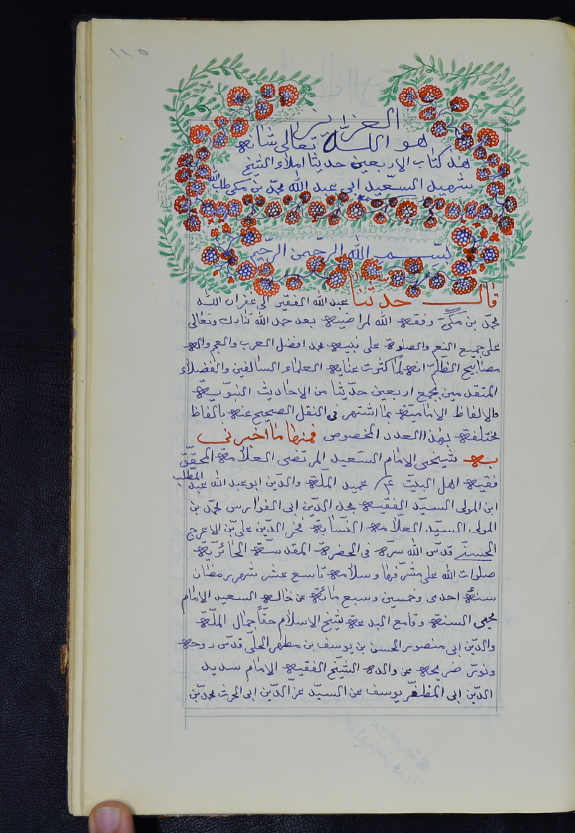 ١١٥
العزيز
هو الله تعالى شانه
هذا كتاب الاربعين حديثا املاء الشيخ
شهيد السعيد ابى عبد الله محمد بن مكى طاب
بسم الله الرحمن الرحيم
قال حدثنا عبد الله الفقير الى غفران الله
محمد بن مكى وفقه الله لمراضيه بعد حمد الله تبارك وتعالى
على جميع النعم والصلوة على نبيه محمد افضل العرب والعجم واله
مصابيح الظلم انه لما كثرت عناية العلماء السالفين والفضلاء
المتقدمين بجمع اربعين حديثا من الاحاديث النبوية
والالفاظ الامامية بما اشتهر فى النقل الصحيح عنه بالفاظ
مختلفة بهذا العدد المخصوص فمنها ما اخبرنى
به شيخى الامام السعيد المرتضى العلامة المحقق
فقيه اهل البيت عم عميد الملة والدين ابو عبد الله عبد المطلب
ابن المولى السيد الفقيه مجد الدين ابى الفوارس محمد بن
المولى السيد العلامة النسابة فخر الدين على بن الاعرج
الحسينى قدس الله سره فى الحضرة المقدسة الحائرية
صلوات الله على مشرفها وسلامه تاسع عشر شهر رمضان
سنة احدى وخمسين وسبع مائة عن خاله السعيد الامام
محيى السنة وقامع البدعة شيخ الاسلام حقا جمال الملة
والدين ابى منصور الحسن بن يوسف بن مطهر الحلى قدس روحه
ونور ضريحه عن والده الشيخ الفقيه الامام سديد
الدين ابى المظفر يوسف عن السيد عز الدين ابى الحرث محمد بن